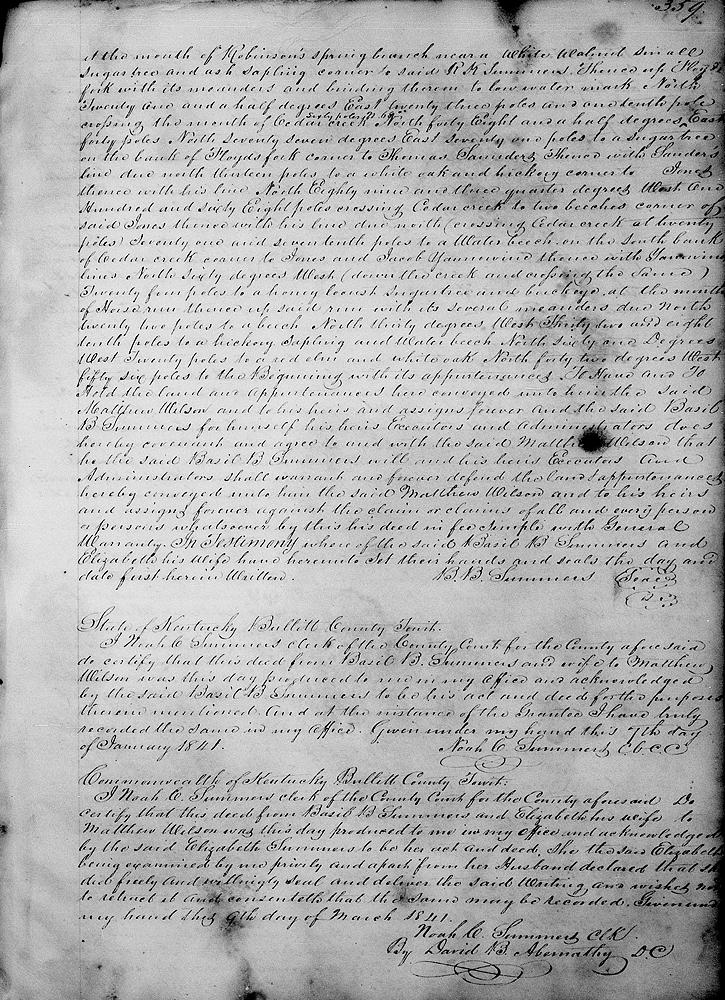 339
at the mouth of Robinson's spring branch near a White Walnut small
Sugartree and ash sapling corner to said R K Summers. Thence up Floyds
fork with its meanders and binding thereon to low water mark North
Twenty one and a half degrees East twenty three poles and one tenth pole
crossing the mouth of Cedar creek North forty Eight and a half degrees East
forty poles North Seventy seven degrees East Seventy one poles to a Sugartree
on the bank of Floyds fork corner to Thomas Saunders Thence with Sanders
line due north thirteen poles to a white oak and hickory corner to Jones
thence with his line North Eighty nine and three quarter degrees West One
Hundred and sixty Eight poles crossing Cedar creek to two beeches corner of
said Jones thence with his line due north (crossing Cedar creek at twenty
poles) Seventy one and seven tenth poles to a Water beech on the South bank
of Cedar creek corner to Jones and Jacob thence with
lines North Sixty degrees West (down the creek and crossing the Same)
Twenty four poles to a honey locust Sugartree and buckeye at the mouth
of Horse run thence up said run with its several meanders due North
twenty two poles to a beech North thirty degrees West Thirty two and eight
tenth poles to a hickory Sapling and Water beech North sixty one Degrees
West Twenty poles to a red elm and white oak North forty two degrees West
fifty six poles to the Beginning with its appurtenances To Have and To
Hold the land and appurtenances here conveyed unto him the said
Matthew Wilson and to his heirs and assigns forever And the said Basil
B Summers for himself his heirs Executors and Administrators does
hereby covenant and agree to and with the said Matthew Wilson that
he the said Basil B Summers will and his heirs Executors And
Administrators shall warrant and forever defend the land & appurtenances
hereby conveyed unto him the said Matthew Wilson and to his heirs
and assigns forever against the claim or claims of all and every person
a persons whatsoever by this his deed in fee Simple with General
Warranty. In Testimony where of the said Basil B Summers and
Elizabeth his Wife have hereunto Set their hands and seals the day and
date first herein Written. B.B. Summers Seal
State of Kentucky Bullitt County Towit.
I Noah C Summers clerk of the County Court for the County aforesaid
do certify that this deed from Basil B. Summers and wife to Matthew
Wilson was this day produced to me in my Office and acknowledged
by the said Basil B Summers to be his act and deed for the purposes
therein mentioned. And at the instance of the Grantee I have truly
recorded the same in my Office. Given under my hand this 7th day
of January 1841. Noah C. Summers C.B.C.C
Commonwealth of Kentucky Bullitt County Towit.
I Noah C. Summers clerk of the County Court for the County aforesaid Do
certify that this deed from Basil B Summers and Elizabeth his wife to
Matthew Wilson was this day produced to me in my office and acknowledged
by the said Elizabeth Summers to be her act and deed, She the said Elizabeth
being examined by me privily and apart from her Husband declared that she
did freely and willingly Seal and deliver the said Writing, and wished not
to retract it And consenteth that the Same may be recorded. Given under
my hand this 9th day of March 1841.
Noah C. Summers Clk
By David B. Abernathy D.C